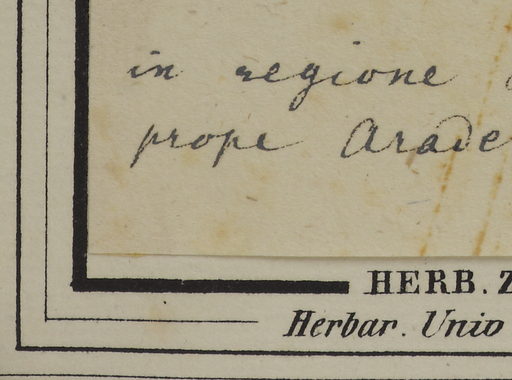 in regione
prope Arade
HERB. Z
Herbar. Unio